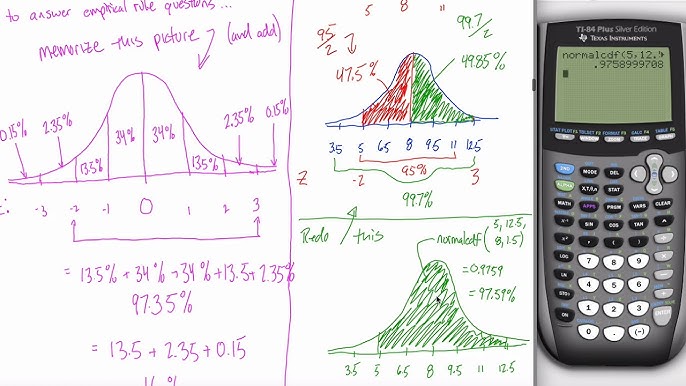 to answer empirical rule questions...
memorize this picture (and add)
0.15% 2.35% 34% 34% 2.35% 0.15%
13.5% 13.5%
-3 -2 -1 0 1 2 3
= 13.5% + 34% + 34% + 13.5 + 2.35%
97.35%
= 13.5 + 2.35 + 0.15
5 8 11
95/2 99.7/2
47.5% 49.85%
3.5 5 6.5 8 9.5 11 12.5
95%
Z -2 3
99.7%
Redo this
normalcdf(5, 12.5, 8, 1.5)
= 0.9759
= 97.59%
3.5 5 6.5 8 9.5 11 12.5
TI-84 Plus Silver Edition
TEXAS INSTRUMENTS
normalcdf(5,12.
.9758999708
STAT PLOT F1 TBLSET F2 FORMAT F3 CALC F4 TABLE F5
Y= WINDOW ZOOM TRACE GRAPH
2ND MODE DEL
ALPHA X,T,θ,n STAT
MATH APPS PRGM VARS CLEAR
x⁻¹ SIN COS TAN ^
x² , ( ) ÷
LOG 7 8 9 ×
LN 4 5 6 −
STO 1 2 3 +
ON 0 . (-) ENTER